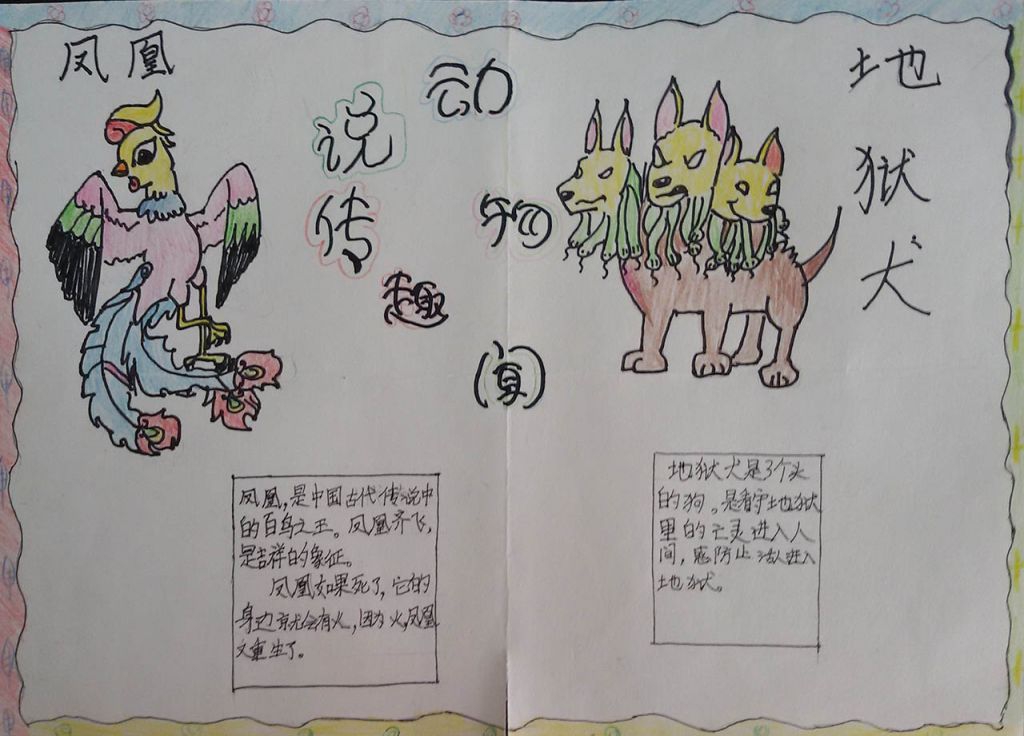 凤凰
说
传
趣
动
物
闻
地
狱
犬
凤凰,是中国古代传说中
的百鸟之王。凤凰齐飞,
是吉祥的象征。
凤凰如果死了,它的
身边就会有火,因为火,凤凰
又重生了。
地狱犬是3个头
的狗。是看守地狱
里的亡灵进入人
间,防止活人进入
地狱。